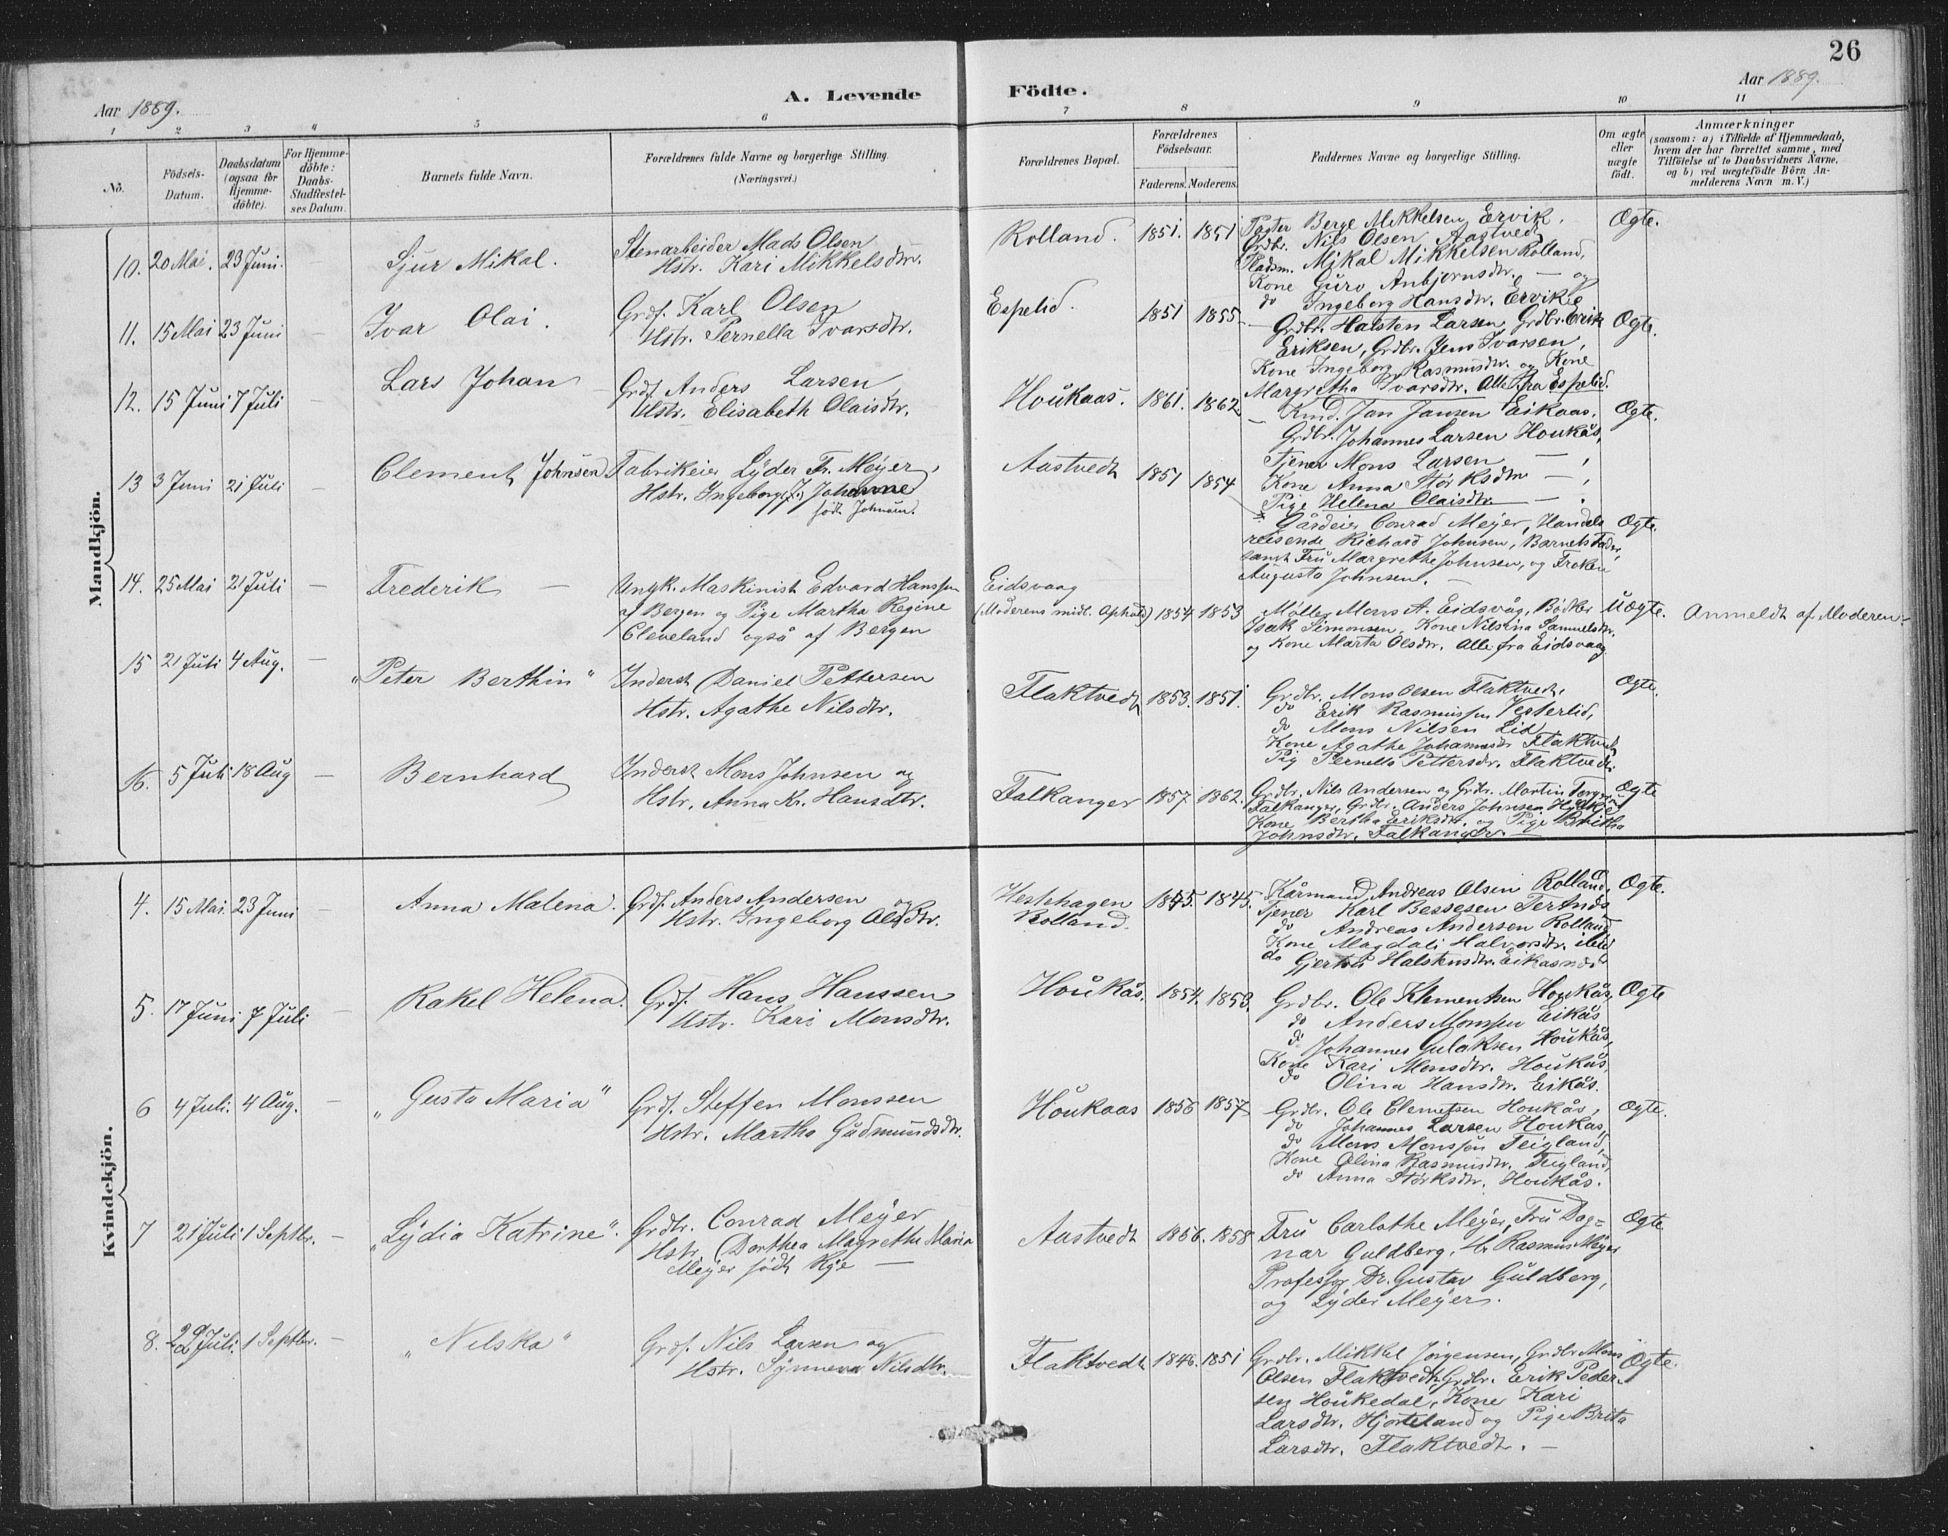 26
Aar 1889.
A. Levende Födte.
Aar 1889.
1 2 3 4 5 6 7 8 9 10 11
No.
Födsels-Datum.
Daabsdatum (ogsaa før Hjemme-döbte).
For Hjemme-döbte: Daabs-Stadfæstel-ses Datum.
Barnets fulde Navn.
Forældrenes fulde Navne og borgerlige Stilling.
(Næringsvei.)
Forældrenes Bopæl.
Forældrenes Födselsaar.
Faderens. Moderens.
Faddernes Navne og borgerlige Stilling.
Om ægte eller uægte födt.
Anmærkninger
(saasom: a) i Tilfælde af Hjemmedaab,
hvem der har forrettet samme, med
Tilföielse af to Daabsvidners Navne,
og b) ved uægtefödte Börn An-
melderens Navn m. V.)
Mandkjön.
10. 20 Mai. 23 Juni. —
Sjur Mikal.
Stenarbeider Mads Olsen
Hstr. Kari Mikkelsdtr.
Rolland. 1851. 1851
Pagter Berge Mikkelsen Ervik.
Grdbr. Nils Olsen Aastvedt
Pladsm. Mikal Mikkelsen Rolland,
Kone Guro Anbjørnsdtr. — og
do Ingeborg Hansdtr. Ervik
Ægte.
11. 15 Mai 23 Juni —
Ivar Olai.
Grdf. Karl Olsen
Hstr. Pernella Ivarsdtr.
Espelid. 1851 1855
Grdbr. Halsten Larsen, Grdbr. Erik
Eriksen, Grdbr. Jens Ivarsen,
Kone Ingeborg Rasmusdtr. og Kone
Margretha Ivarsdtr. Alle fra Espelid.
Ægte.
12. 15 Juni 7 Juli —
Lars Johan
Grdf. Anders Larsen
Hstr. Elisabeth Olaisdtr.
Houkaas. 1861. 1862
Kmd. Jan Jansen Eikaas.
Grdbr. Johannes Larsen Houkås,
Tjener Mons Larsen — ,
Kone Anna Størksdtr — ,
Pige Helena Olaisdtr. — .
Ægte.
13 3 Juni 21 Juli —
Clement Johnsen
Fabrikeier Lyder Fr. Meyer,
Hstr. Ingeborg J. Johanne
født Johnsen.
Aastvedt 1851 1854
Gårdeier Conrad Meyer, Handels
reisende Richard Johnsen, Barnets Fader,
samt Fru Margrethe Johnsen, og Frøken
Augusta Johnsen. —
Ægte.
14. 25 Mai 21 Juli —
Frederik —
Ungk. Maskinist Edvard Hanssen
af Bergen og Pige Martha Regine
Cleveland også af Bergen
Eidsvaag
(Moderens midl. Ophold) 1854 1853
Møller Mons A. Eidsvåg, Bødker
Isak Simonsen, Kone Nilsina Samuelsdtr.
og Kone Marta Olsdtr. Alle fra Eidsvaag
Uægte.
Anmeldt af Moderen.
15 21 Juli 4 Aug. —
"Peter Berthin"
Inderst Daniel Pettersen
Hstr. Agathe Nilsdtr.
Flaktvedt 1853. 1851.
Grdbr. Mons Olsen Flaktvedt,
do Erik Rasmussen Vesterlid,
do Mons Nilsen Lid
Kone Agathe Johannesdtr Flaktvedt
Pig Pernella Pettersdtr. Flaktvedt
Ægte.
16. 5 Juli 18 Aug —
Bernhard
Inderst Mons Johnsen og
Hstr. Anna Kr. Hansdtr.
Falkanger 1857. 1862.
Grdbr. Nils Andersen og Grdbr. Martin
Falkanger, Grdbr. Anders Johnsen
Kone Bertha Eriksdtr. og Pige Britha
Johnsdtr. Falkanger. —
Ægte
Kvindekjön.
4. 15 Mai. 23 Juni —
Anna Malena.
Grdf. Anders Andersen og
Hstr. Ingeborg Olsdtr.
Hesthagen
Rolland. 1845. 1845.
Kårmand Andreas Olsen Rolland,
Tjener Karl Bessesen Tertnes
do Andreas Andersen Rolland
Kone Magdali Halvorsdtr. ibid
do Gjertrud Halstensdtr.
Ægte.
5. 17 Juni 7 Juli —
Rakel Helena.
Grdf. Hans Hanssen
Hstr. Kari Monsdtr.
Houkås. 1854. 1853.
Grdbr. Ole Klementsen Houkås,
do Anders Monssen Eikås
do Johannes Gulaksen Houkås,
Kone Kari Monsdtr. Houkås,
do Olina Hansdtr. Eikås.
Ægte
6 4 Juli. 4 Aug. —
"Gusta Maria"
Grdf. Steffen Monssen
Hstr. Martha Gudmundsdtr.
Houkaas 1856 1857
Grdbr. Ole Clemetsen Houkås,
do Johannes Larsen Houkås,
do Mons Monssen Teigland,
Kone Olina Rasmusdtr. Teigland,
do Anna Størksdtr. Houkås.
Ægte.
7 21 Juli 1 Septbr. —
"Lydia Katrine".
Grdbr. Conrad Meyer
Hstr. Dorthea Magrethe Maria
Meyer født Rye —
Aastvedt 1856. 1858
Fru Carlothe Meyer, Fru Dag=
nar Guldberg, Hr Rasmus Meyer
Professor Dr. Gustav Guldberg,
og Lyder Meyer.
Ægte
8. 22 Juli. 1 Septbr. —
"Nilska"
Grdf. Nils Larsen og
Hstr. Synneva Nilsdtr.
Flaktvedt 1846. 1851
Grdbr. Mikkel Jørgensen, Grdbr Mons
Olsen Flaktvedt, Grdbr. Erik Peder-
sen Houkedal, Kone Kari
Larsdtr. Hjorteland og Pige Brita
Larsdtr. Flaktvedt. —
Ægte.